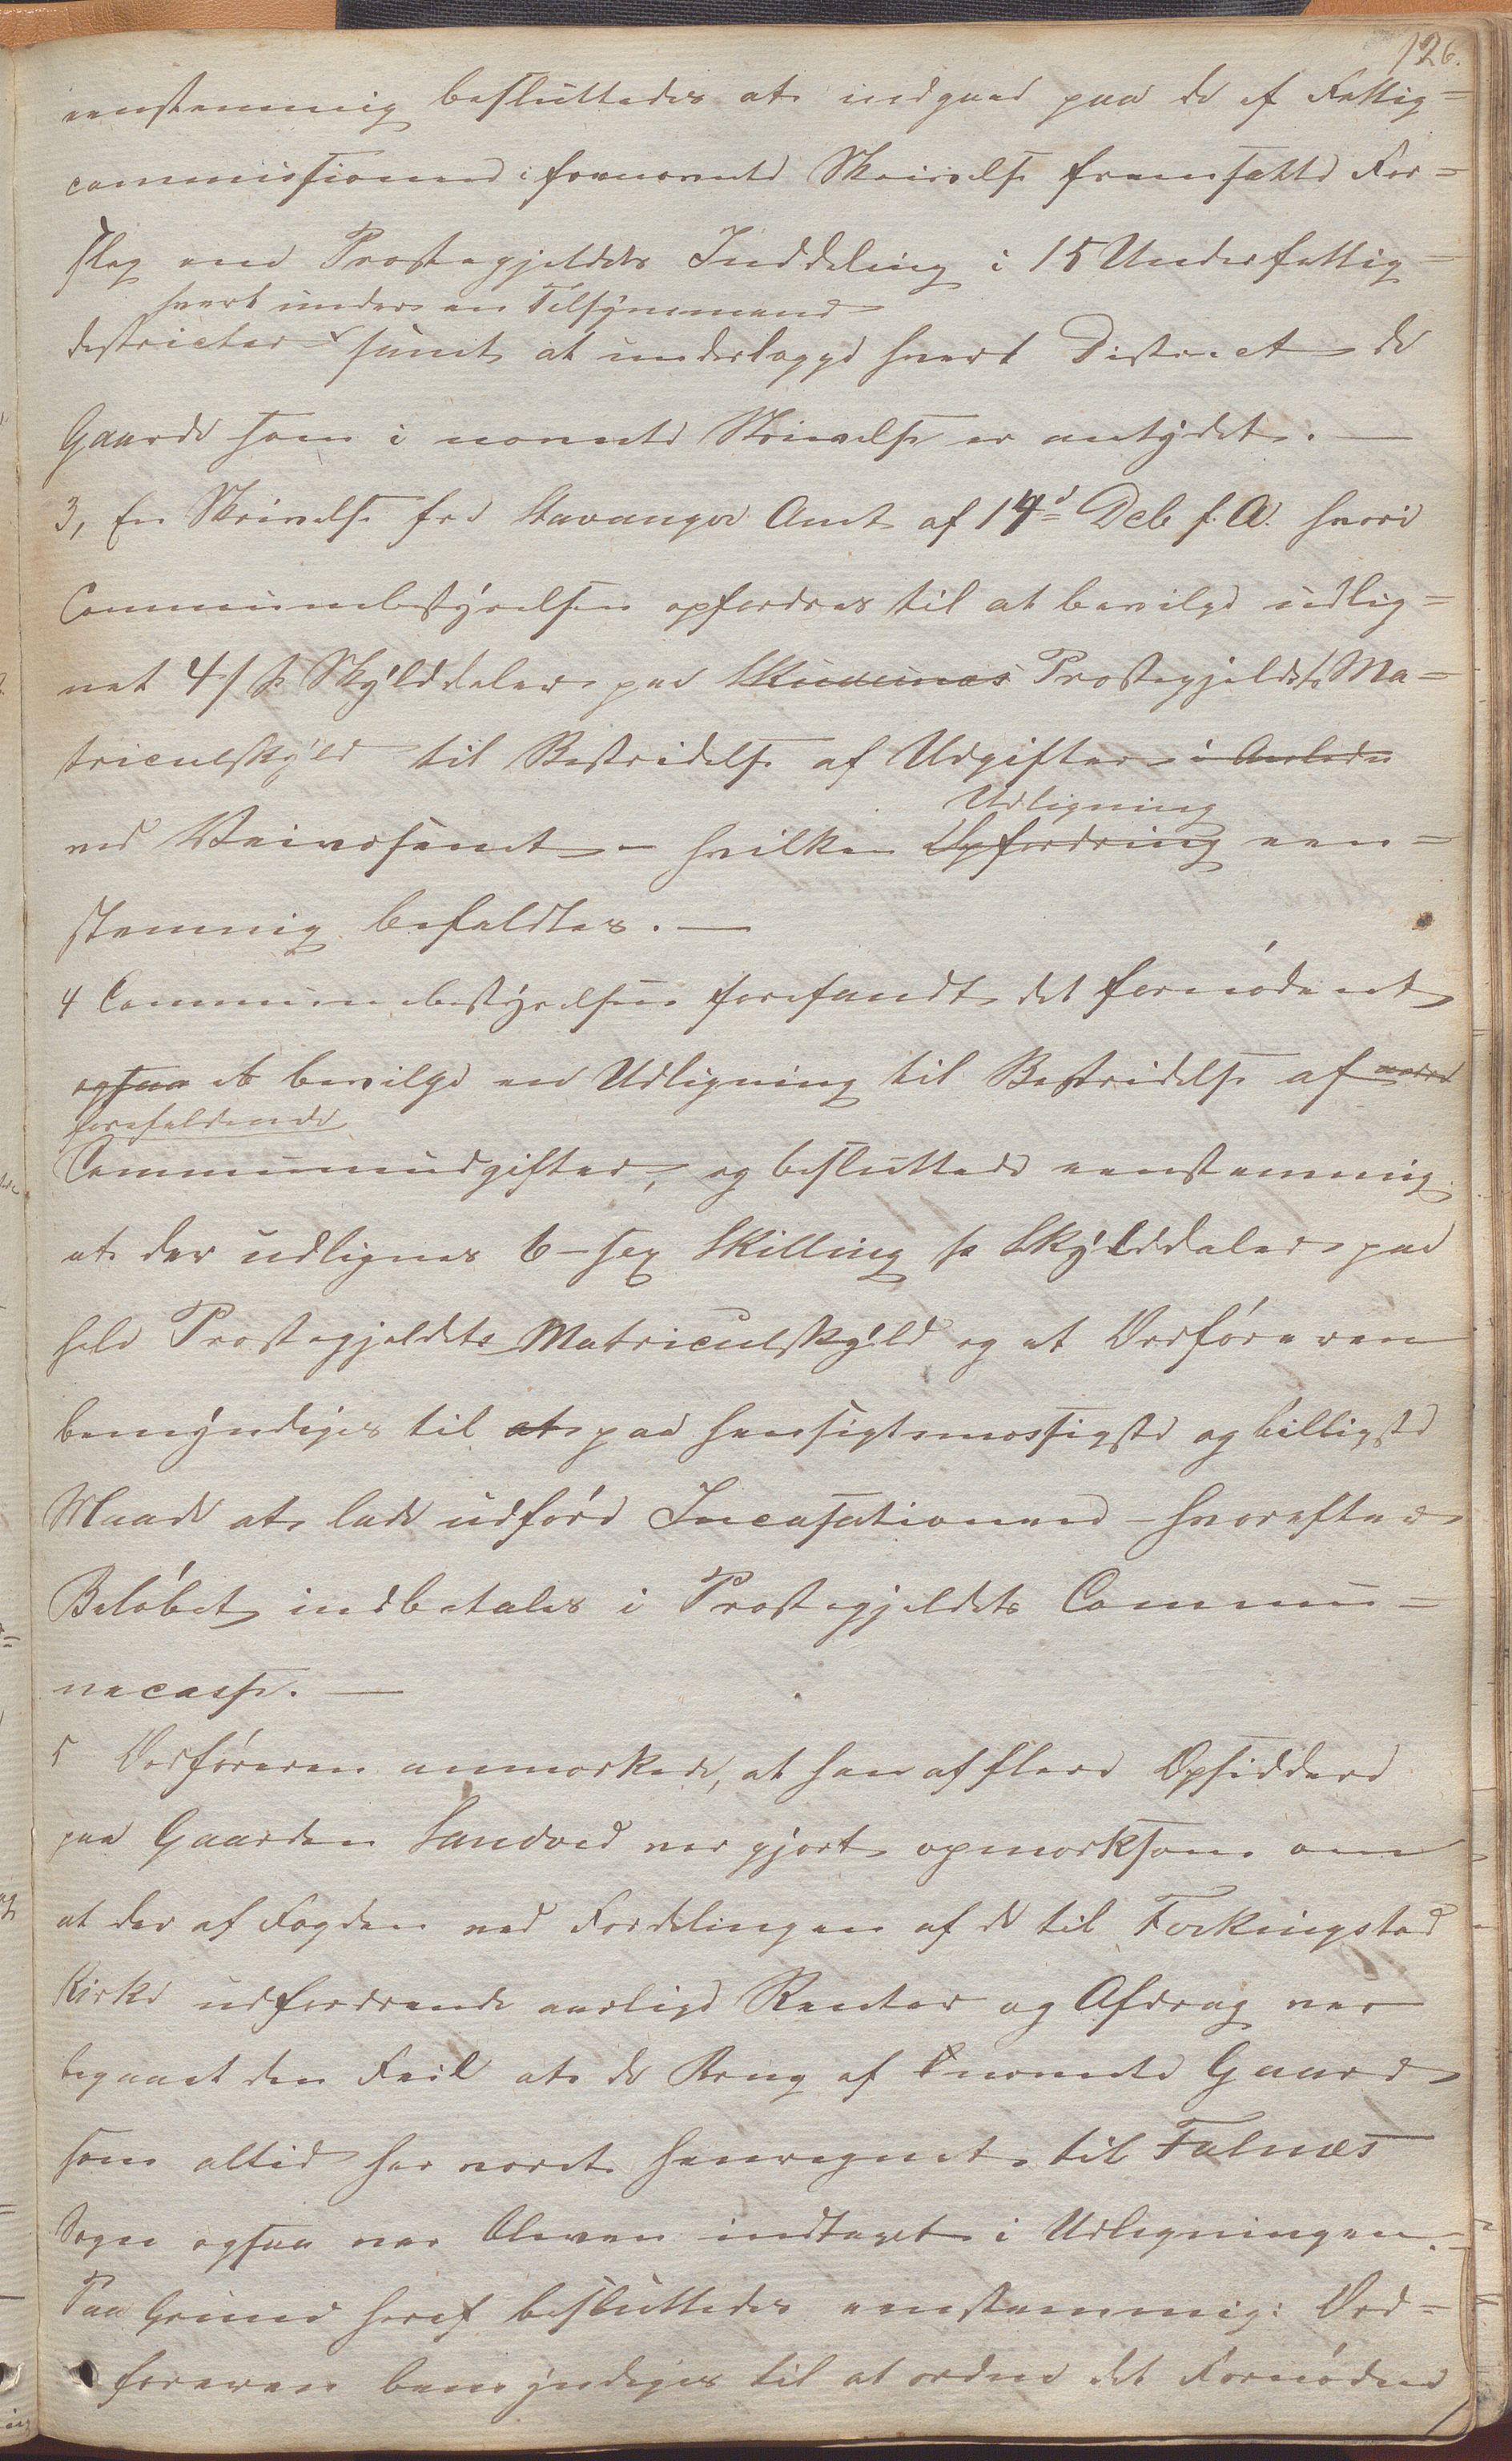 126.
eenstemmig besluttedes at indgaae paa de af Fattig=
commissionen i fornævnte Skrivelse fremsatte For=
slag om Præstegjeldets Inddeling i 15 Underfattig=
hvert under en Tilsynsmand
districter samt at underlægge hvert District de
Gaarde som i nævnte Skrivelse er antydet. —
3, En Skrivelse fra Stavanger Amt af 14d Deb f. A. hvori
Communebestyrelsen opfordres til at bevilge udlig=
net 4 s pr Skylddaler paa Skudenæs Præstegjeldets Ma=
triculskyld til Bestridelse af Udgifter i Anledn
Udligning
ved Veivæsenet – hvilken Opfordring een=
stemmig befaldtes. —
4 Communebestyrelsen forefandt det fornødent
ogsaa at bevilge en Udligning til Bestridelse af andre
forefaldende
Communeudgifter, og besluttede eenstemmig
at der udlignes 6 – sex Skilling pr Skylddaler paa
hele Præstegjeldets Matriculskyld og at Ordføreren
bemyndiges til at paa hensigtsmæssigste og billigste
Maade at lade udføre Incasationen – hvorefter
Beløbet indbetales i Præstegjeldets Commu=
necasse. —
5 Ordføreren anmærkede, at han af flere Opsiddere
paa Gaarden Sandved var gjort opmærksom om
at der af Fogden ved Fordelingen af de til Ferkingstad
Kirke udfordrende aarlige Renter og Afdrag var
begaaet den Feil at de Brug af nævnte Gaard
som altid har været henregnet til Falnæs
Sogn ogsaa var bleven indtaget i Udligningen.
Paa Grund heraf besluttedes eenstemmig: Ord=
føreren bemyndiges til at ordne det Fornødne